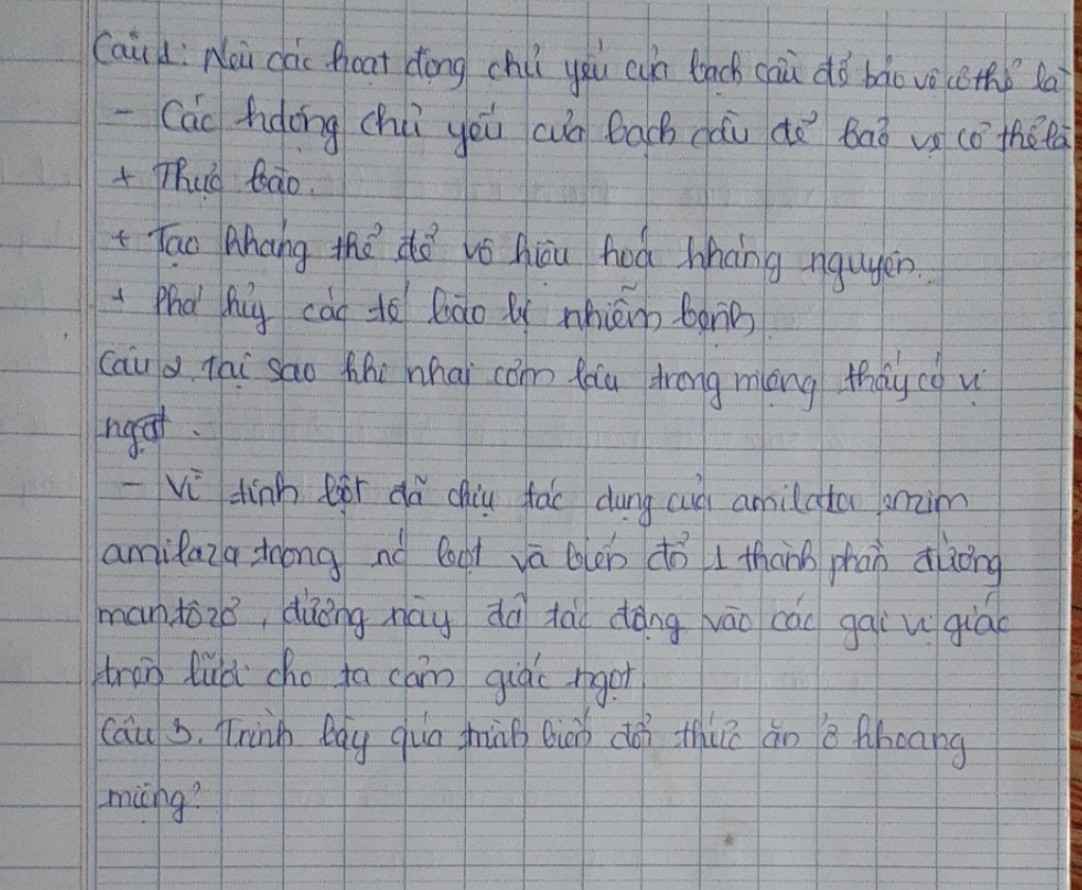 Câu 1: Nêu các hoạt động chủ yếu của bạch cầu để bảo vệ cơ thể là
- Các hđộng chủ yếu của bạch cầu để bảo vệ cơ thể là
+ Thực bào.
+ Tạo kháng thể để vô hiệu hoá kháng nguyên.
+ Phá hủy các tế bào bị nhiễm bệnh
Câu 2 Tại sao khi nhai cơm lâu trong miệng thấy có vị
ngọt.
- Vì tinh bột đã chịu tác dụng của enzim
amilaza trong nc bọt và biến đổ 1 thành phần đường
mantôzơ, đường này đã tác động vào các gai vị giác
trên lưỡi cho ta cảm giác ngọt
Câu 3. Trình bày quá trình biến đổi thức ăn ở khoang
miệng?